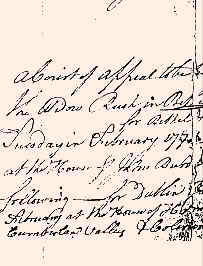 a Court of Appeal to be
the Widow Rush in Bed
for Bethel
Tuesday in February 177
at the House of
following — for Dublin
February at the House of
Cumberland Valley & Colerain